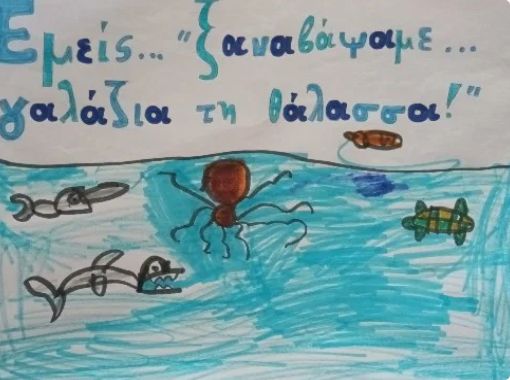 Εμείς... "ξαναβάψαμε...
γαλάζια τη θάλασσα!"